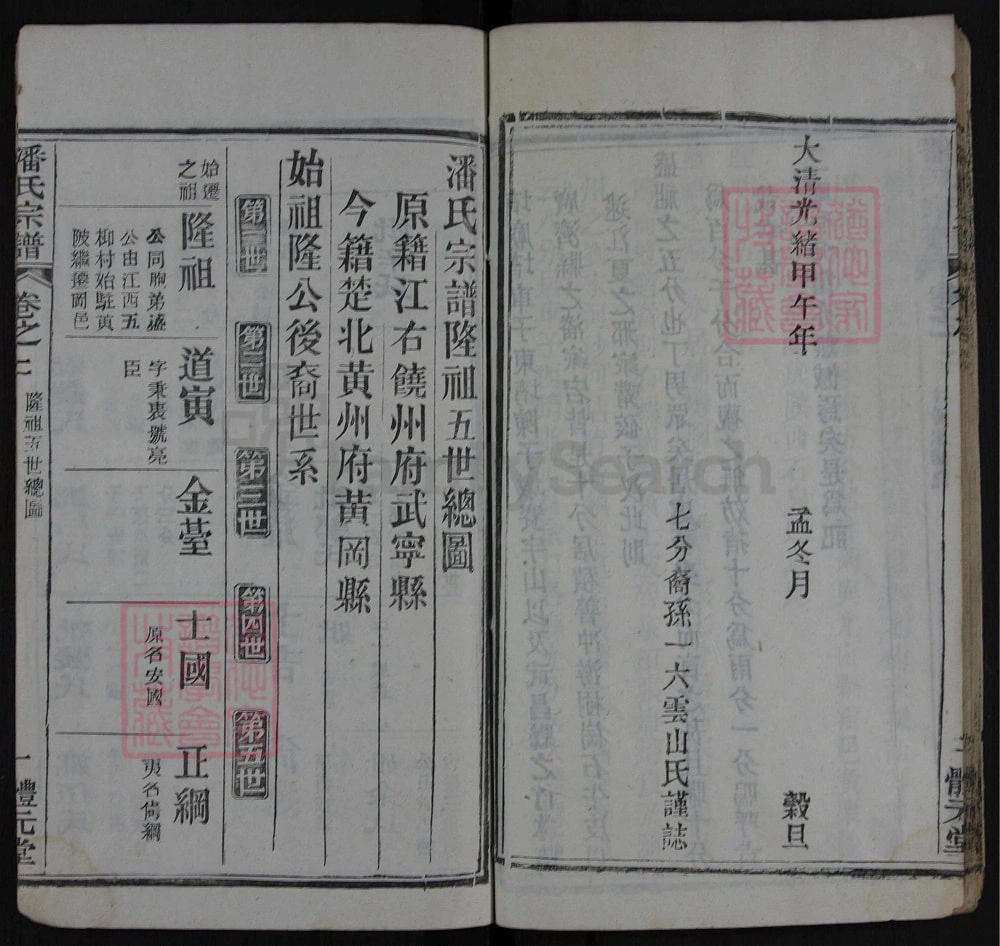 大清光緒甲午年　孟冬月　穀旦
七分裔孫一六雲山氏謹誌
體元堂
潘氏宗譜隆祖五世總圖
原籍江右饒州府武寧縣
今籍楚北黃州府黃岡縣
始祖隆公後裔世系
第一世　第二世　第三世　第四世　第五世
始遷之祖　隆祖　道寅　金臺　士國　正綱
公同胞弟盛
公由江西五
柳村始駐黃
陂繼遷岡邑
字秉衷號亮
臣
原名安國
更名儁綱
潘氏宗譜　卷之上　隆祖五世總圖　一　體元堂
FamilySearch